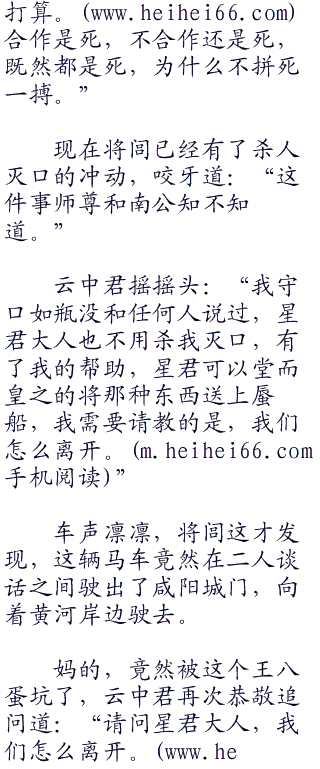 打算。(www.heihei66.com)
合作是死，不合作还是死，
既然都是死，为什么不拼死
一搏。”
现在将闾已经有了杀人
灭口的冲动，咬牙道：“这
件事师尊和南公知不知
道。”
云中君摇摇头：“我守
口如瓶没和任何人说过，星
君大人也不用杀我灭口，有
了我的帮助，星君可以堂而
皇之的将那种东西送上蜃
船，我需要请教的是，我们
怎么离开。(m.heihei66.com
手机阅读)”
车声凛凛，将闾这才发
现，这辆马车竟然在二人谈
话之间驶出了咸阳城门，向
着黄河岸边驶去。
妈的，竟然被这个王八
蛋坑了，云中君再次恭敬追
问道：“请问星君大人，我
们怎么离开。(www.he